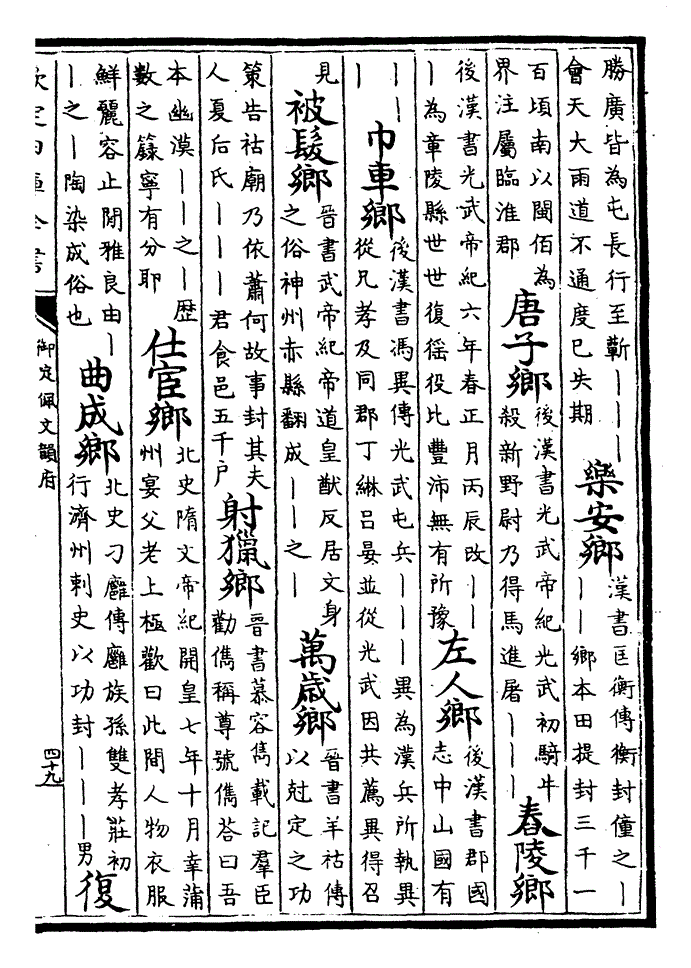 勝廣皆為屯長行至蘄｜｜｜
會天大雨道不通度已失期
樂安鄉
漢書匡衡傳衡封僮之｜
｜｜鄉本田提封三千一
百頃南以閩佰為
界注屬臨淮郡
唐子鄉
後漢書光武帝紀光武初騎牛
殺新野尉乃得馬進屠｜｜｜
舂陵鄉
後漢書光武帝紀六年春正月丙辰改｜｜
｜為章陵縣世世復徭役比豐沛無有所豫
左人鄉
後漢書郡國
志中山國有
｜｜
｜
巾車鄉
後漢書馮異傳光武屯兵｜｜｜異為漢兵所執異
從兄孝及同郡丁綝呂晏並從光武因共薦異得召
見
被髮鄉
晉書武帝紀帝道皇猷反居文身
之俗神州赤縣翻成｜｜之｜
萬歲鄉
晉書羊祜傳
以尅定之功
策告祜廟乃依蕭何故事封其夫
人夏后氏｜｜｜君食邑五千戶
射獵鄉
晉書慕容儁載記羣臣
勸儁稱尊號儁荅曰吾
本幽漠｜｜之｜歷
數之籙寧有分耶
仕宦鄉
北史隋文帝紀開皇七年十月幸蒲
州宴父老上極歡曰此間人物衣服
鮮麗容止閒雅良由｜
｜之｜陶染成俗也
曲成鄉
北史刁雝傳雝族孫雙孝莊初
行濟州刺史以功封｜｜｜男
復
欽定四庫全書
御定佩文韻府
四十九